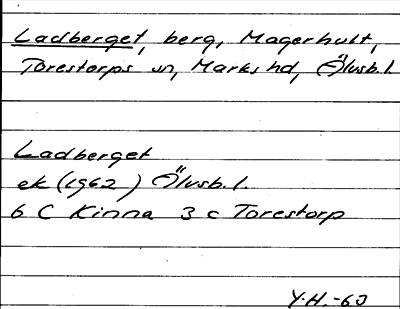 Ladberget, berg, Magerhult,
Torestorps sn, Marks hd, Älvsb. l.
Ladberget
ek (1962) Älvsb. l.
6 C Kinna 3 c Torestorp
Y.H. -63